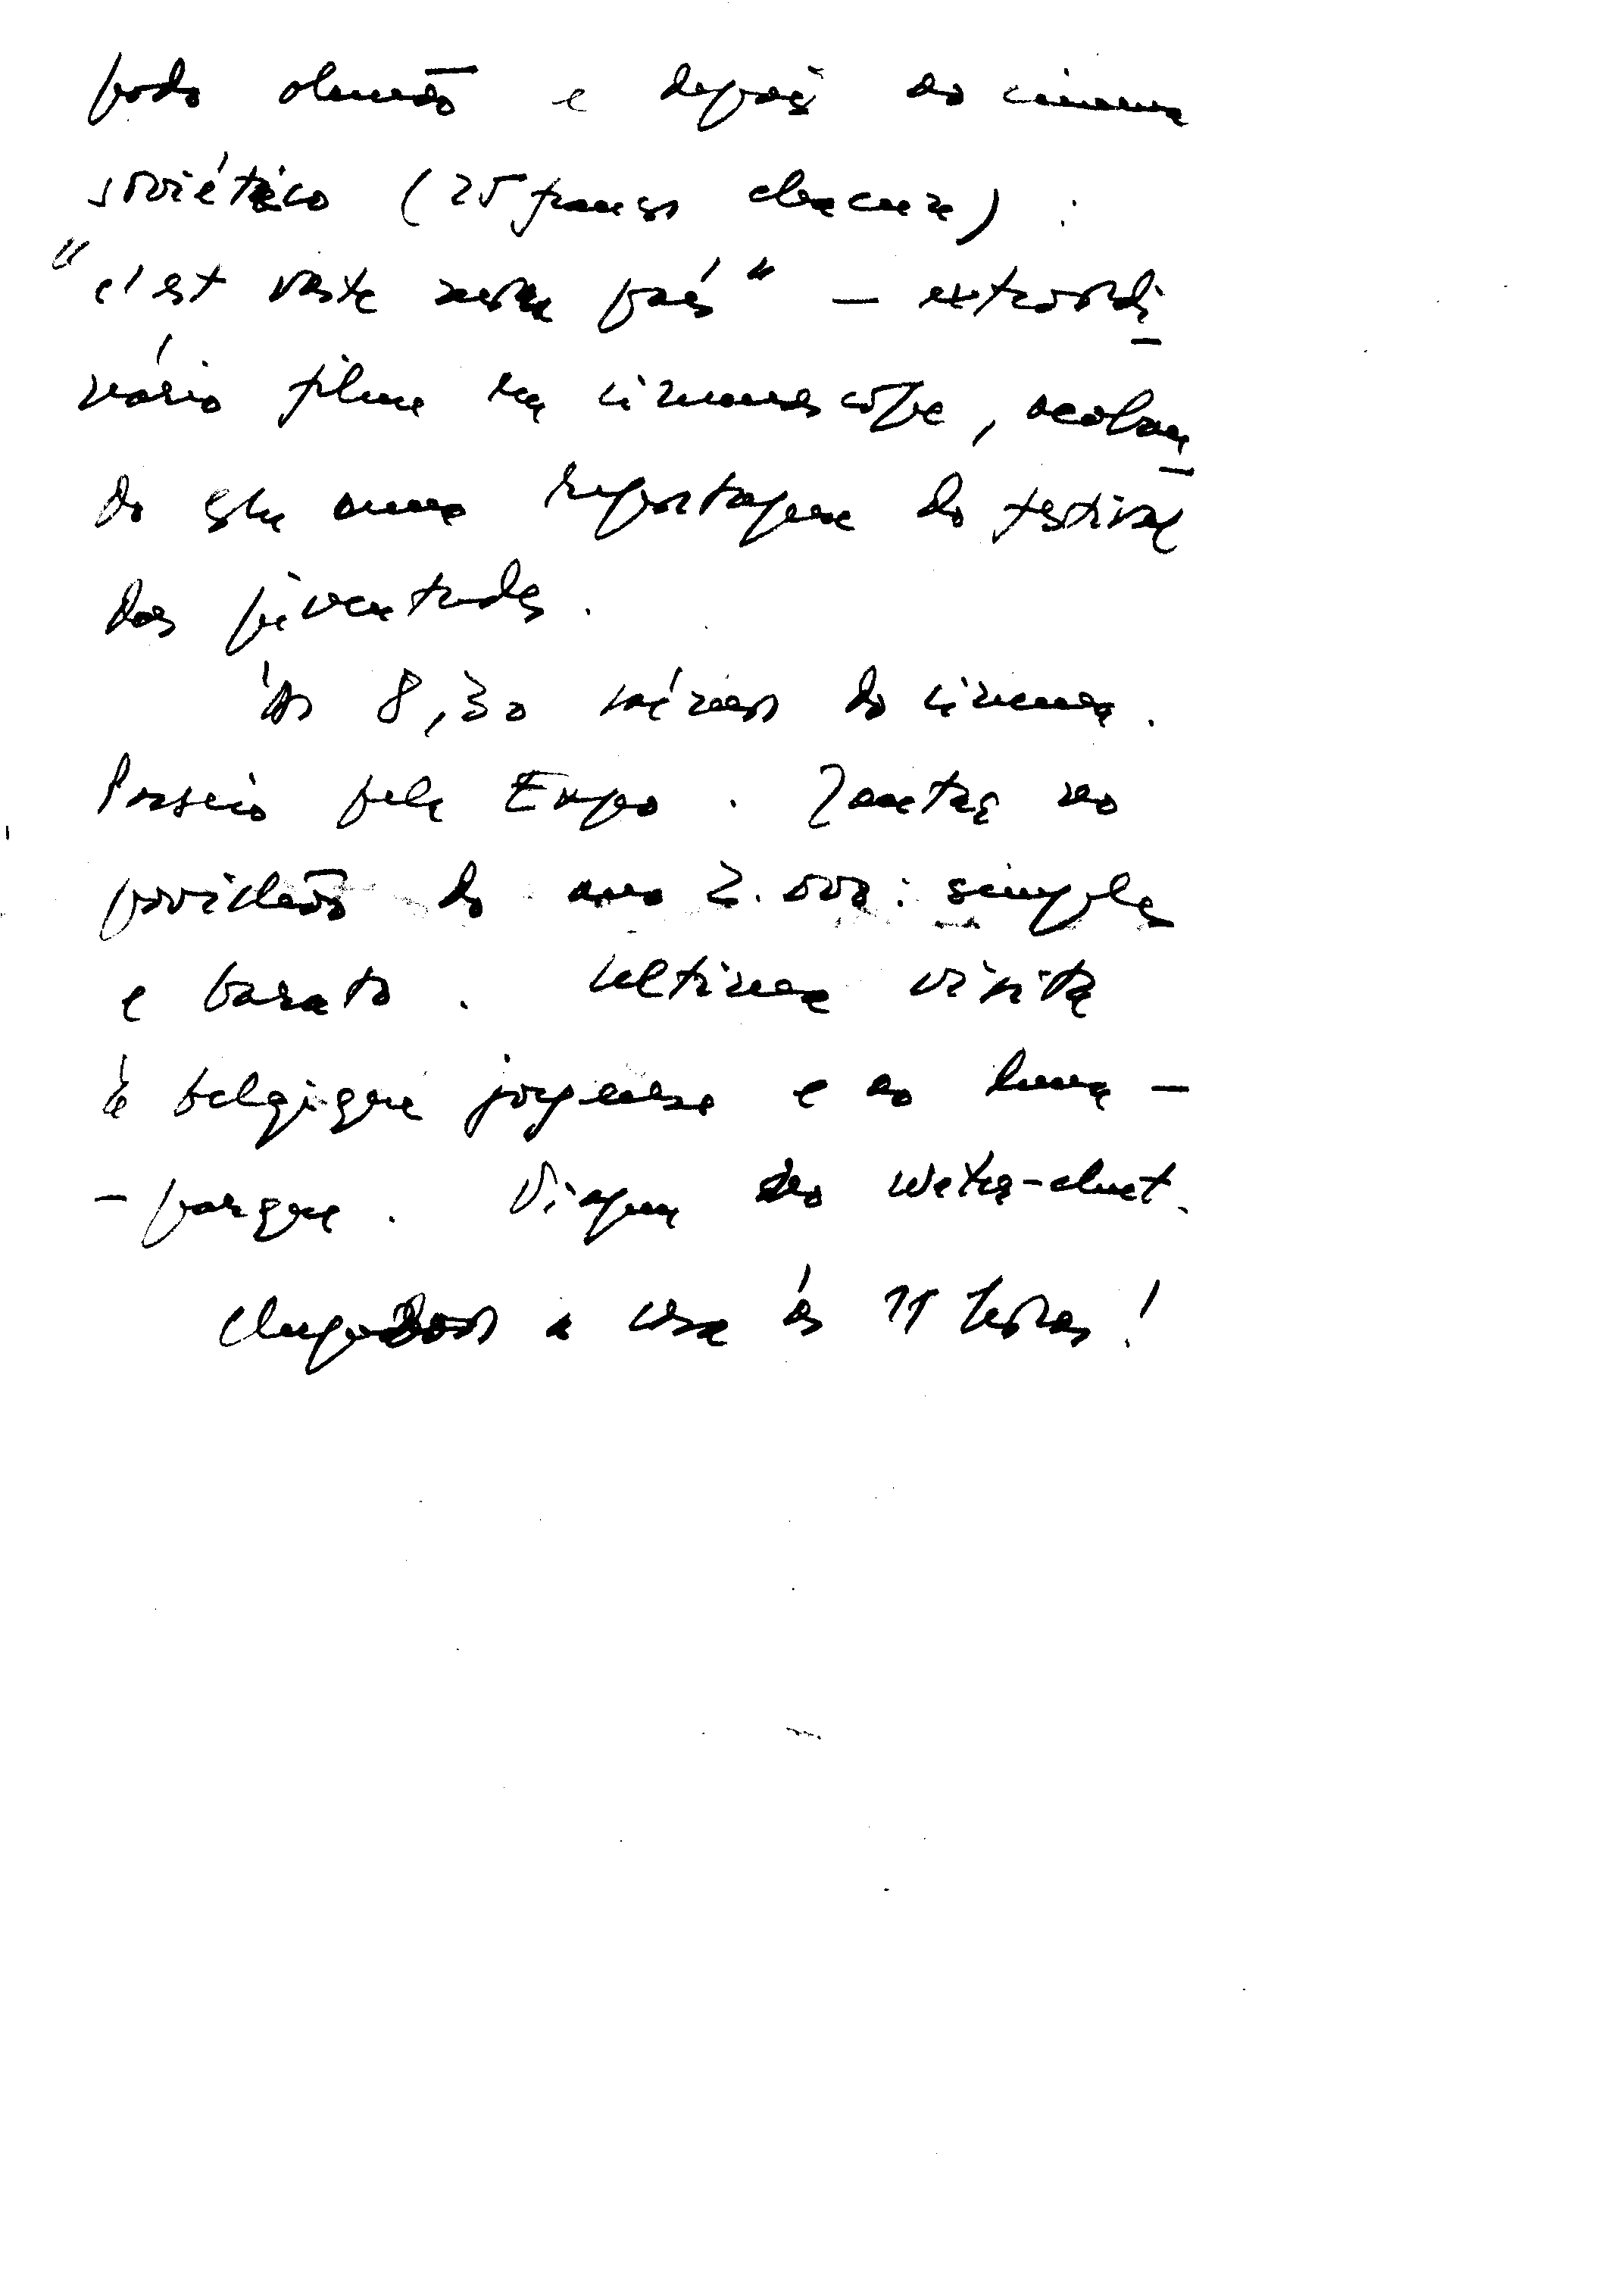 podo alemão e depois ao cinema
soviético (25 francos cada um) :
"c'est vaste notre país" — extraordi-
nário filme em cinemascope, acaban-
do em uma reportagem do festival
das juventudes.
Às 8,30 saímos do cinema.
Passeio pela Expo. Jantar no
pavilhão do ano 2.000: simples
e barato. Ultima visita
à belgique joyeuse e ao luna-
-parque. Viagem no watt-chut.
Chegados a casa ás 11 horas!